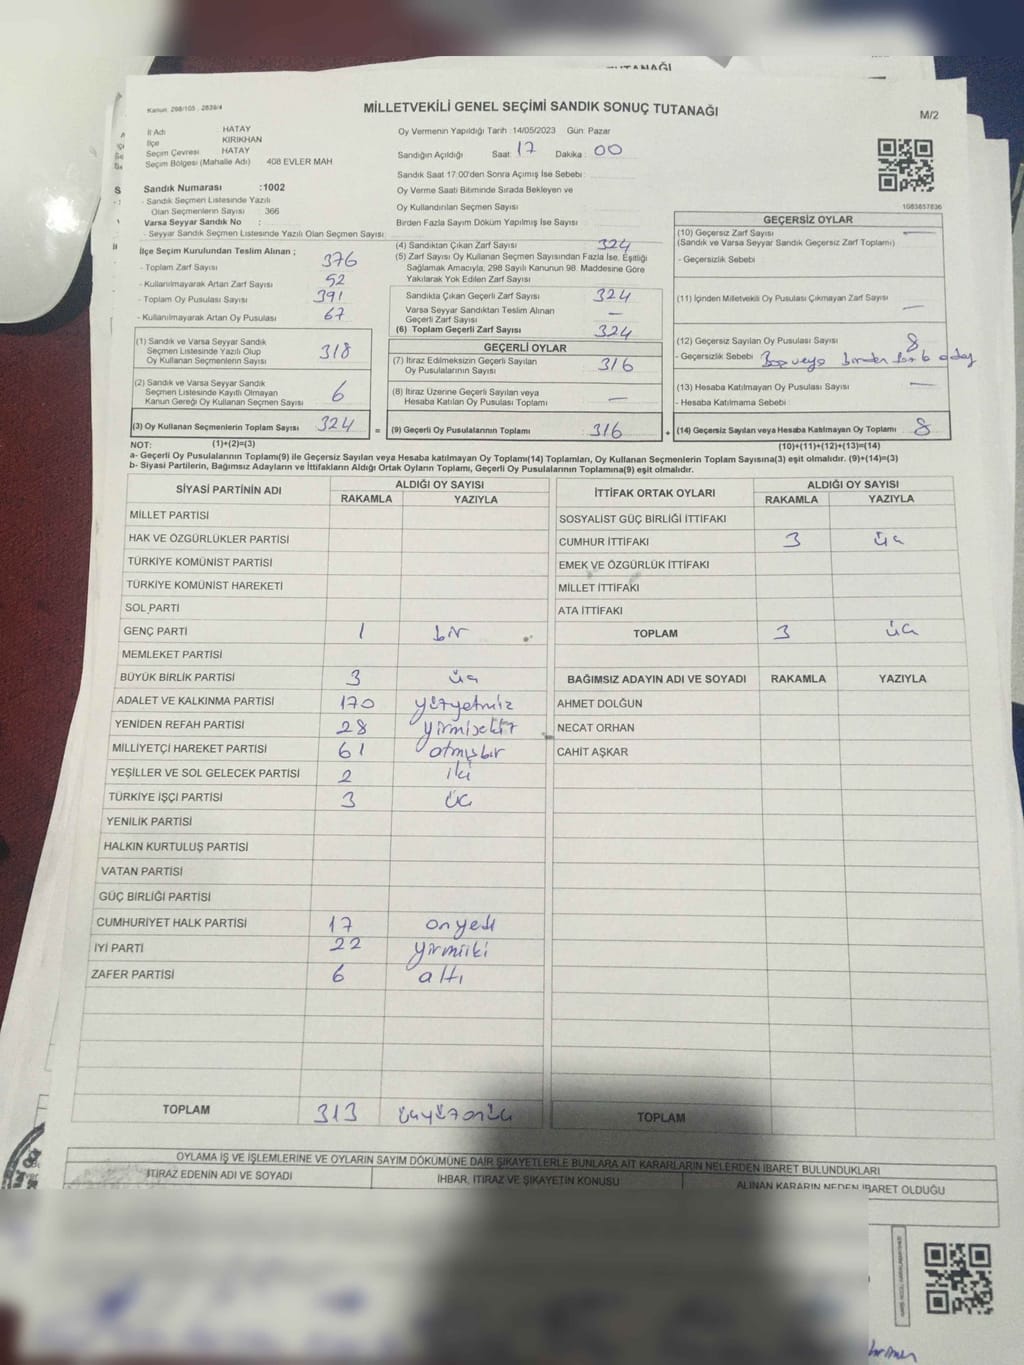 TUTANAĞI
Kanun: 298/105 , 2839/4
MİLLETVEKİLİ GENEL SEÇİMİ SANDIK SONUÇ TUTANAĞI
M/2
İl Adı HATAY
İlçe KIRIKHAN
Seçim Çevresi HATAY
Seçim Bölgesi (Mahalle Adı) 408 EVLER MAH
Oy Vermenin Yapıldığı Tarih :14/05/2023 Gün: Pazar
Sandığın Açıldığı Saat: 17 Dakika : 00
Sandık Saat 17:00'den Sonra Açımış İse Sebebi :
Oy Verme Saati Bitiminde Sırada Bekleyen ve
Oy Kullandırılan Seçmen Sayısı
Birden Fazla Sayım Döküm Yapılmış İse Sayısı
1083657836
Sandık Numarası :1002
- Sandık Seçmen Listesinde Yazılı
Olan Seçmenlerin Sayısı : 366
Varsa Seyyar Sandık No :
- Seyyar Sandık Seçmen Listesinde Yazılı Olan Seçmen Sayısı:
İlçe Seçim Kurulundan Teslim Alınan ;
- Toplam Zarf Sayısı 376
- Kullanılmayarak Artan Zarf Sayısı 52
- Toplam Oy Pusulası Sayısı 391
- Kullanılmayarak Artan Oy Pusulası 67
(1) Sandık ve Varsa Seyyar Sandık
Seçmen Listesinde Yazılı Olup
Oy Kullanan Seçmenlerin Sayısı 318
(2) Sandık ve Varsa Seyyar Sandık
Seçmen Listesinde Kayıtlı Olmayan
Kanun Gereği Oy Kullanan Seçmen Sayısı 6
(3) Oy Kullanan Seçmenlerin Toplam Sayısı 324 =
(4) Sandıktan Çıkan Zarf Sayısı 324
(5) Zarf Sayısı Oy Kullanan Seçmen Sayısından Fazla İse, Eşitliği
Sağlamak Amacıyla, 298 Sayılı Kanunun 98. Maddesine Göre
Yakılarak Yok Edilen Zarf Sayısı
Sandıkta Çıkan Geçerli Zarf Sayısı 324
Varsa Seyyar Sandıktan Teslim Alınan
Geçerli Zarf Sayısı —
(6) Toplam Geçerli Zarf Sayısı 324
GEÇERLİ OYLAR
(7) İtiraz Edilmeksizin Geçerli Sayılan
Oy Pusulalarının Sayısı 316
(8) İtiraz Üzerine Geçerli Sayılan veya
Hesaba Katılan Oy Pusulası Toplamı —
(9) Geçerli Oy Pusulalarının Toplamı 316 +
GEÇERSİZ OYLAR
(10) Geçersiz Zarf Sayısı —
(Sandık ve Varsa Seyyar Sandık Geçersiz Zarf Toplamı)
- Geçersizlik Sebebi
(11) İçinden Milletvekili Oy Pusulası Çıkmayan Zarf Sayısı —
(12) Geçersiz Sayılan Oy Pusulası Sayısı 8
- Geçersizlik Sebebi Boş veya birden
(13) Hesaba Katılmayan Oy Pusulası Sayısı —
- Hesaba Katılmama Sebebi
(14) Geçersiz Sayılan veya Hesaba Katılmayan Oy Toplamı 8
NOT: (1)+(2)=(3) (10)+(11)+(12)+(13)=(14)
a- Geçerli Oy Pusulalarının Toplamı(9) ile Geçersiz Sayılan veya Hesaba katılmayan Oy Toplamı(14) Toplamları, Oy Kullanan Seçmenlerin Toplam Sayısına(3) eşit olmalıdır. (9)+(14)=(3)
b- Siyasi Partilerin, Bağımsız Adayların ve İttifakların Aldığı Ortak Oyların Toplamı, Geçerli Oy Pusulalarının Toplamına(9) eşit olmalıdır.
SİYASİ PARTİNİN ADI ALDIĞI OY SAYISI
RAKAMLA YAZIYLA
MİLLET PARTİSİ
HAK VE ÖZGÜRLÜKLER PARTİSİ
TÜRKİYE KOMÜNİST PARTİSİ
TÜRKİYE KOMÜNİST HAREKETİ
SOL PARTİ
GENÇ PARTİ 1 bir
MEMLEKET PARTİSİ
BÜYÜK BİRLİK PARTİSİ 3 üç
ADALET VE KALKINMA PARTİSİ 170 yüzyetmiz
YENİDEN REFAH PARTİSİ 28 yirmisekiz
MİLLİYETÇİ HAREKET PARTİSİ 61 atmışbir
YEŞİLLER VE SOL GELECEK PARTİSİ 2 iki
TÜRKİYE İŞÇİ PARTİSİ 3 üç
YENİLİK PARTİSİ
HALKIN KURTULUŞ PARTİSİ
VATAN PARTİSİ
GÜÇ BİRLİĞİ PARTİSİ
CUMHURİYET HALK PARTİSİ 17 onyedi
İYİ PARTİ 22 yirmiiki
ZAFER PARTİSİ 6 altı
TOPLAM 313 üçyüzonüç
İTTİFAK ORTAK OYLARI ALDIĞI OY SAYISI
RAKAMLA YAZIYLA
SOSYALİST GÜÇ BİRLİĞİ İTTİFAKI
CUMHUR İTTİFAKI 3 üç
EMEK VE ÖZGÜRLÜK İTTİFAKI
MİLLET İTTİFAKI
ATA İTTİFAKI
TOPLAM 3 üç
BAĞIMSIZ ADAYIN ADI VE SOYADI RAKAMLA YAZIYLA
AHMET DOLĞUN
NECAT ORHAN
CAHİT AŞKAR
TOPLAM
OYLAMA İŞ VE İŞLEMLERİNE VE OYLARIN SAYIM DÖKÜMÜNE DAİR ŞİKAYETLERLE BUNLARA AİT KARARLARIN NELERDEN İBARET BULUNDUKLARI
İTİRAZ EDENİN ADI VE SOYADI İHBAR, İTİRAZ VE ŞİKAYETİN KONUSU ALINAN KARARIN NEDEN İBARET OLDUĞU